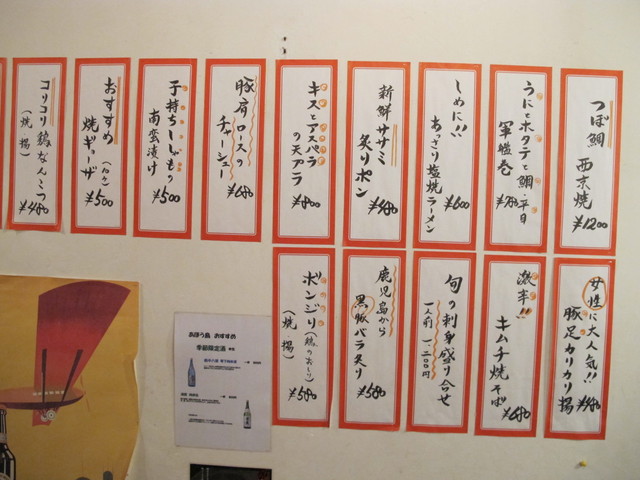 つぼ鯛
西京焼
¥1200
うにとホタテと鯛・平目
軍艦巻
¥780
しめに!!
あっさり塩焼ラーメン
¥600
新鮮ササミ
炙りポン
¥480
キスとアスパラ
の天プラ
¥800
豚肩ロースの
チャーシュー
¥680
子持ちししゃもの
南蛮漬け
¥500
おすすめ
焼ギョーザ
¥500
コリコリ鶏なんこつ
(焼・揚)
¥480
女性に大人気!!
豚足カリカリ揚
¥480
激辛!!
キムチ焼そば
¥680
旬の刺身盛り合せ
一人前 一、二〇〇円
鹿児島から
黒豚バラ炙り
¥580
ボンジリ(鶏のおしり)
(焼・揚)
¥580
あほう鳥 おすすめ
季節限定酒